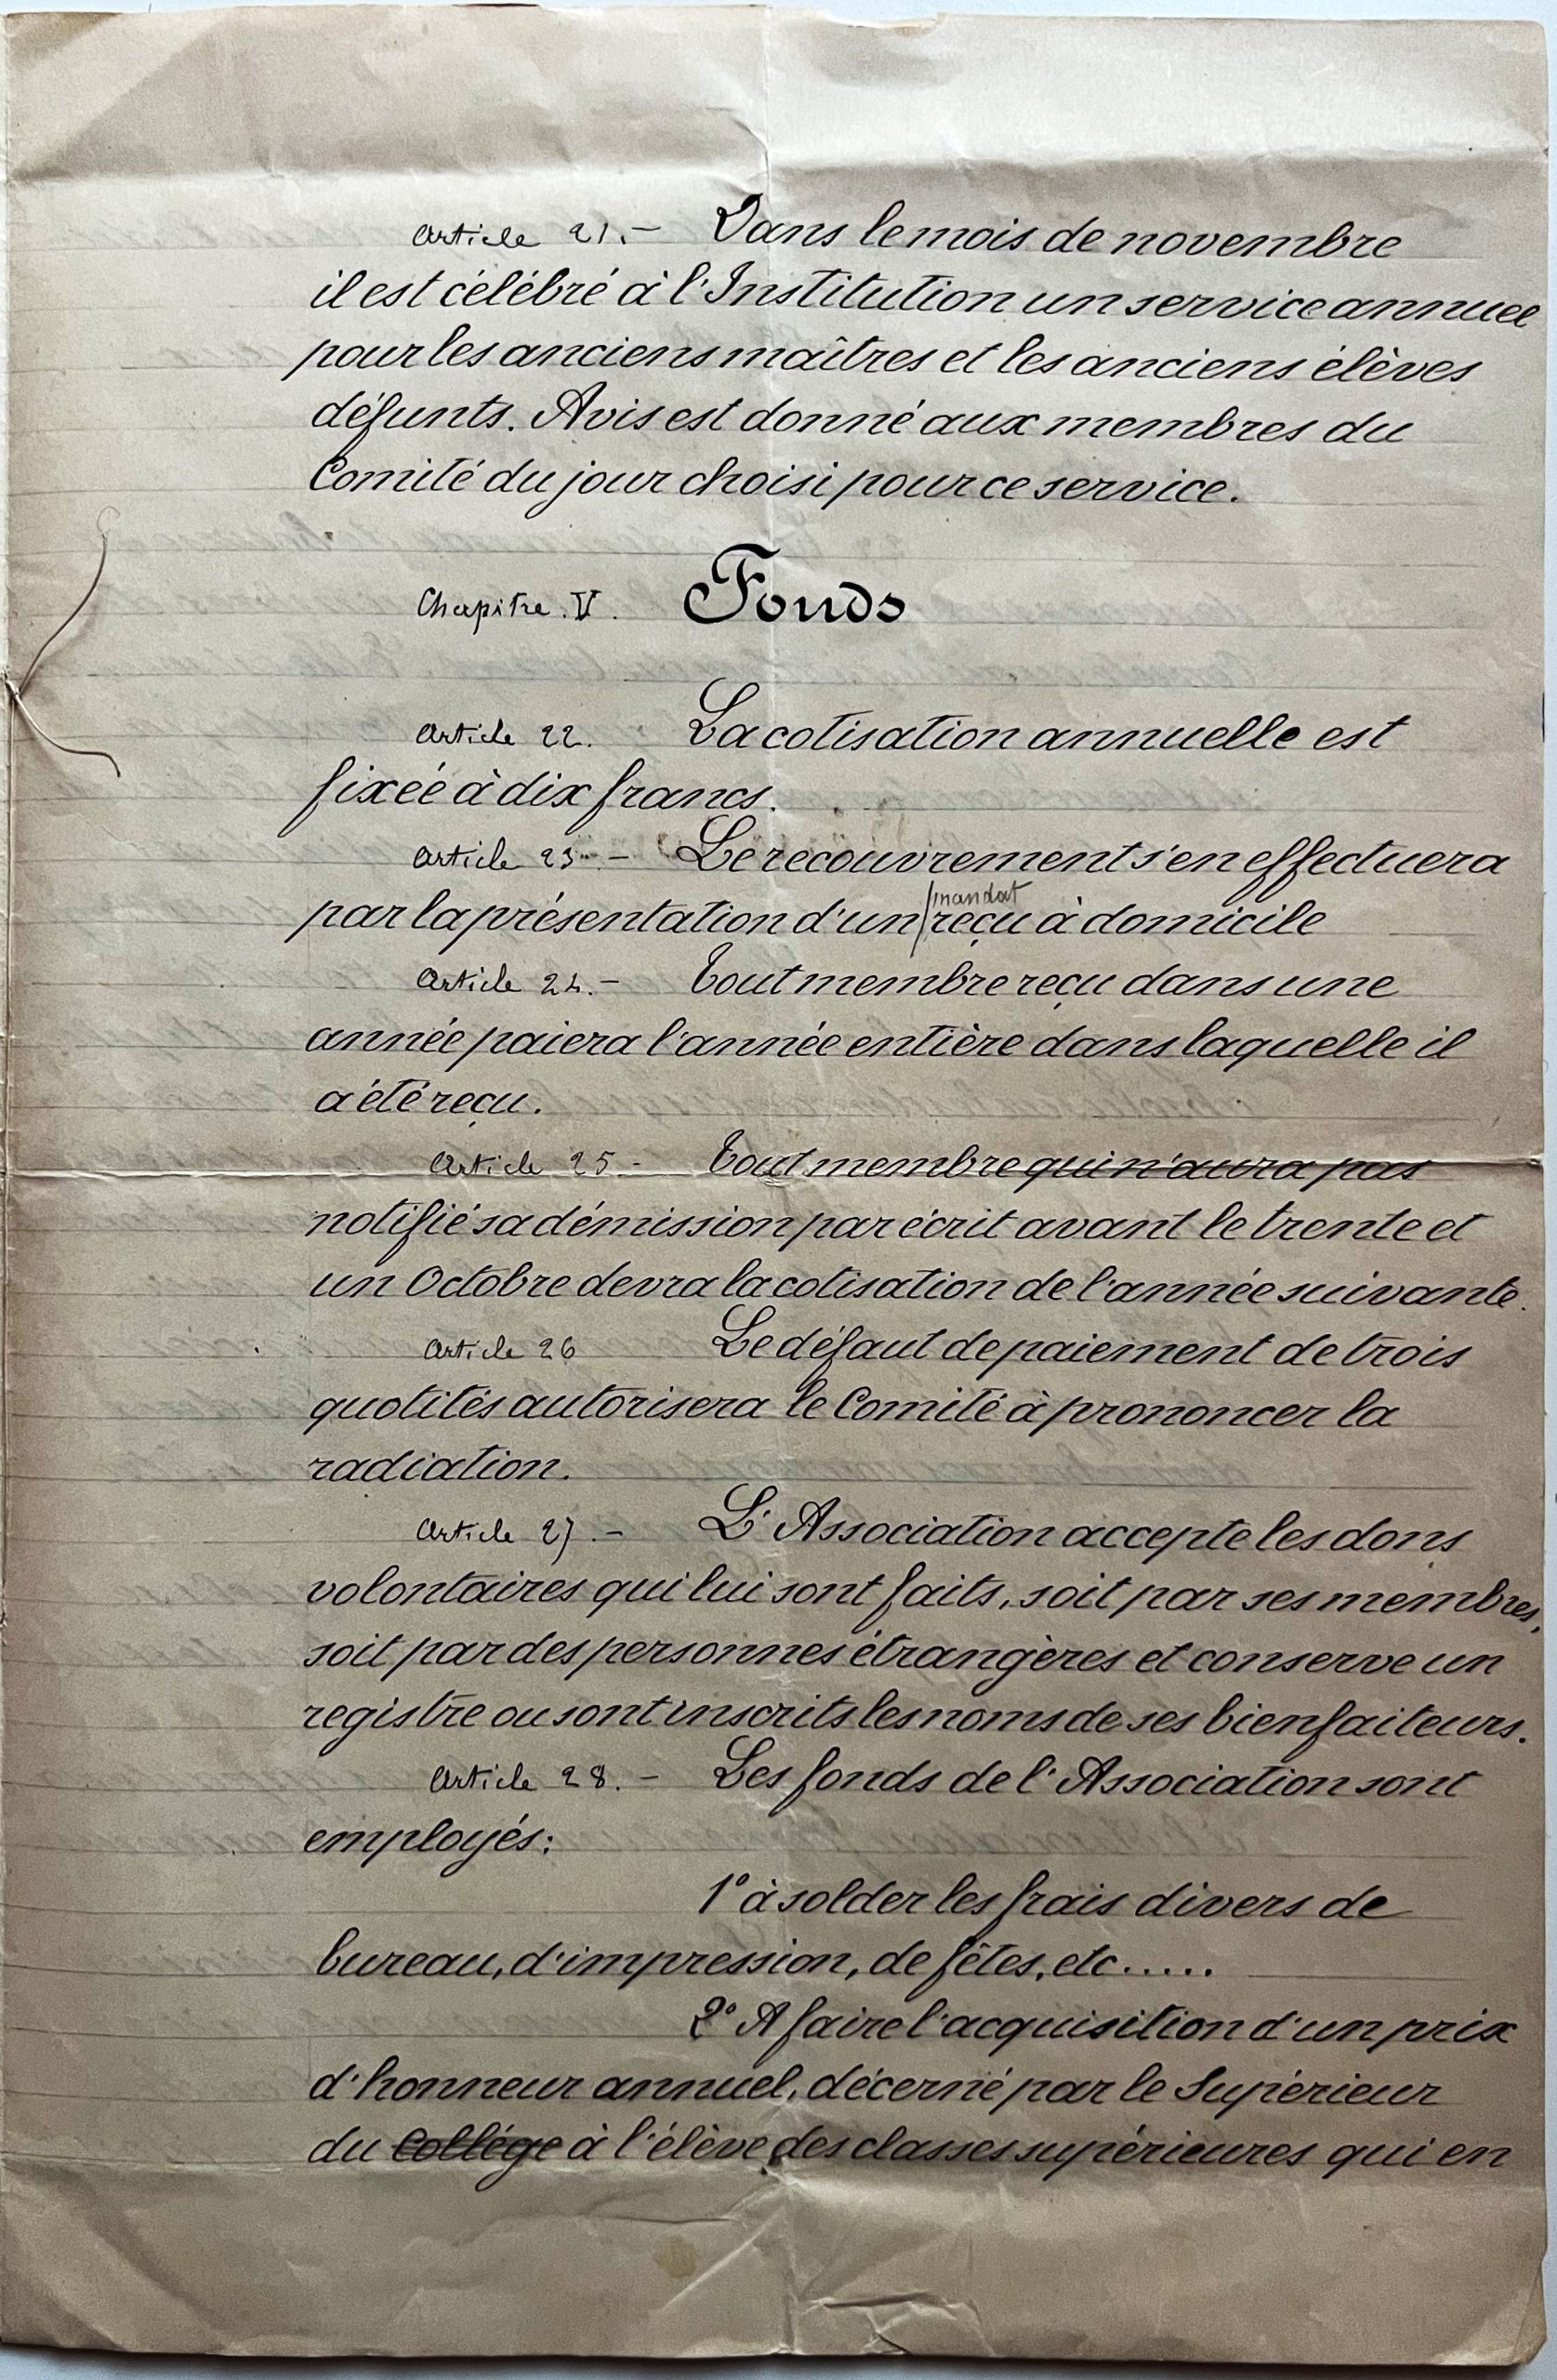 Article 21.- Dans le mois de novembre
il est célébré à l'Institution un service annuel
pour les anciens maîtres et les anciens élèves
défunts. Avis est donné aux membres du
Comité du jour choisi pour ce service.
Chapitre. V. Fonds
Article 22. La cotisation annuelle est
fixée à dix francs.
Article 23.- Le recouvrement s'en effectuera
mandat
par la présentation d'un reçu à domicile
Article 24.- Tout membre reçu dans une
année paiera l'année entière dans laquelle il
a été reçu.
Article 25.- Tout membre qui n'aura pas
notifié sa démission par écrit avant le trente et
un Octobre devra la cotisation de l'année suivante.
Article 26 Le défaut de paiement de trois
quotités autorisera le Comité à prononcer la
radiation.
Article 27.- L'Association accepte les dons
volontaires qui lui sont faits, soit par ses membres,
soit par des personnes étrangères et conserve un
registre ou sont inscrits les noms de ses bienfaiteurs.
Article 28.- Les fonds de l'Association sont
employés:
1° à solder les frais divers de
bureau, d'impression, de fêtes, etc.....
2° A faire l'acquisition d'un prix
d'honneur annuel, décerné par le Supérieur
du Collége à l'élève des classes supérieures qui en